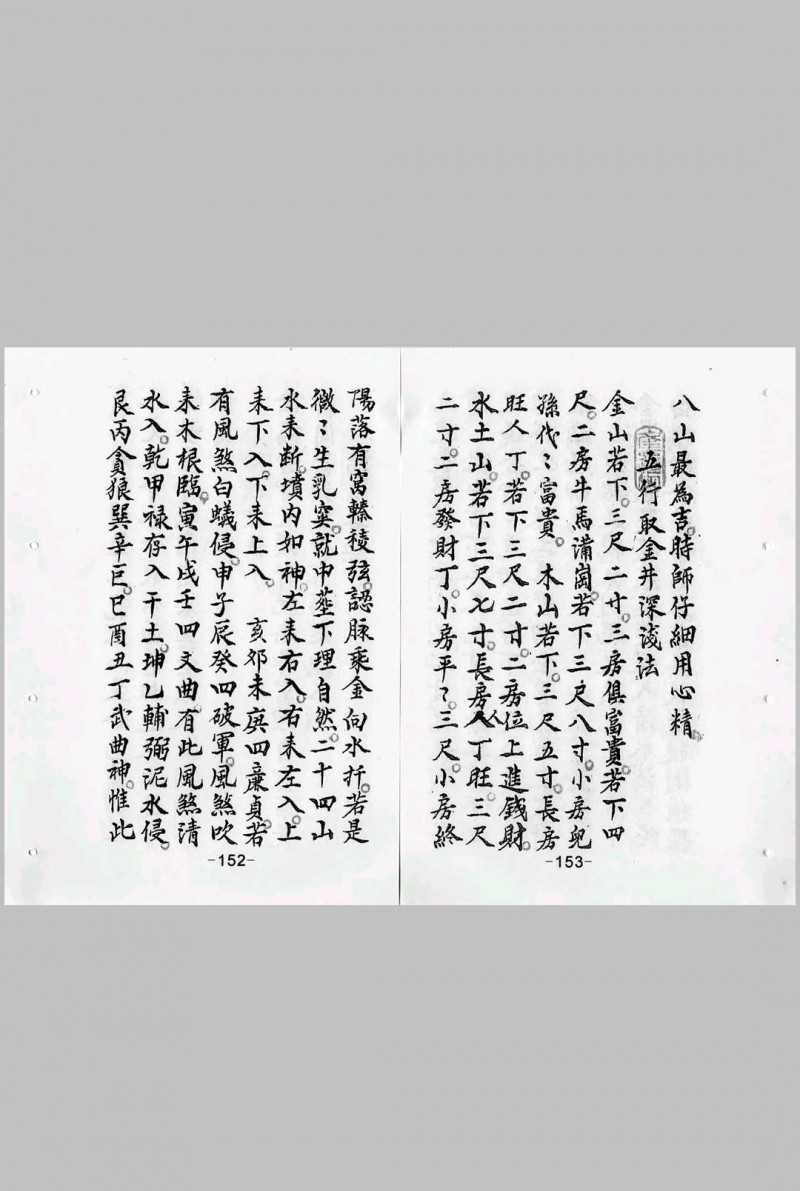 陽落有窩轃稜弦認脉乘金向水扦。若是
微〻生乳突。就中塟下理自然。二十四山
水來断。墳内如神。左來右入。右來左入。上
來下入。下來上入。 亥卯未庚四廉貞。若
有風煞白蟻侵。申子辰癸四破軍。風煞吹
來木根臨。寅午戌壬四文曲。有此風煞清
水入。乾甲禄存入干土。坤乙輔弼泥水侵。
艮丙貪狼巽辛巨。巳酉丑丁武曲神。惟此
-152-
八山最為吉。時師仔細用心精。
五行取金井深淺法
金山若下。三尺二寸。三房俱富貴。若下四
尺。二房牛馬滿崗。若下三尺八寸。小房兒
孫代〻富貴。木山若下。三尺五寸。長房
旺人丁。若下三尺二寸。二房位上進錢財。
水土山。若下三尺七寸。長房人丁旺。三尺
二寸。二房發財丁。小房平〻。三尺小房終
-153-